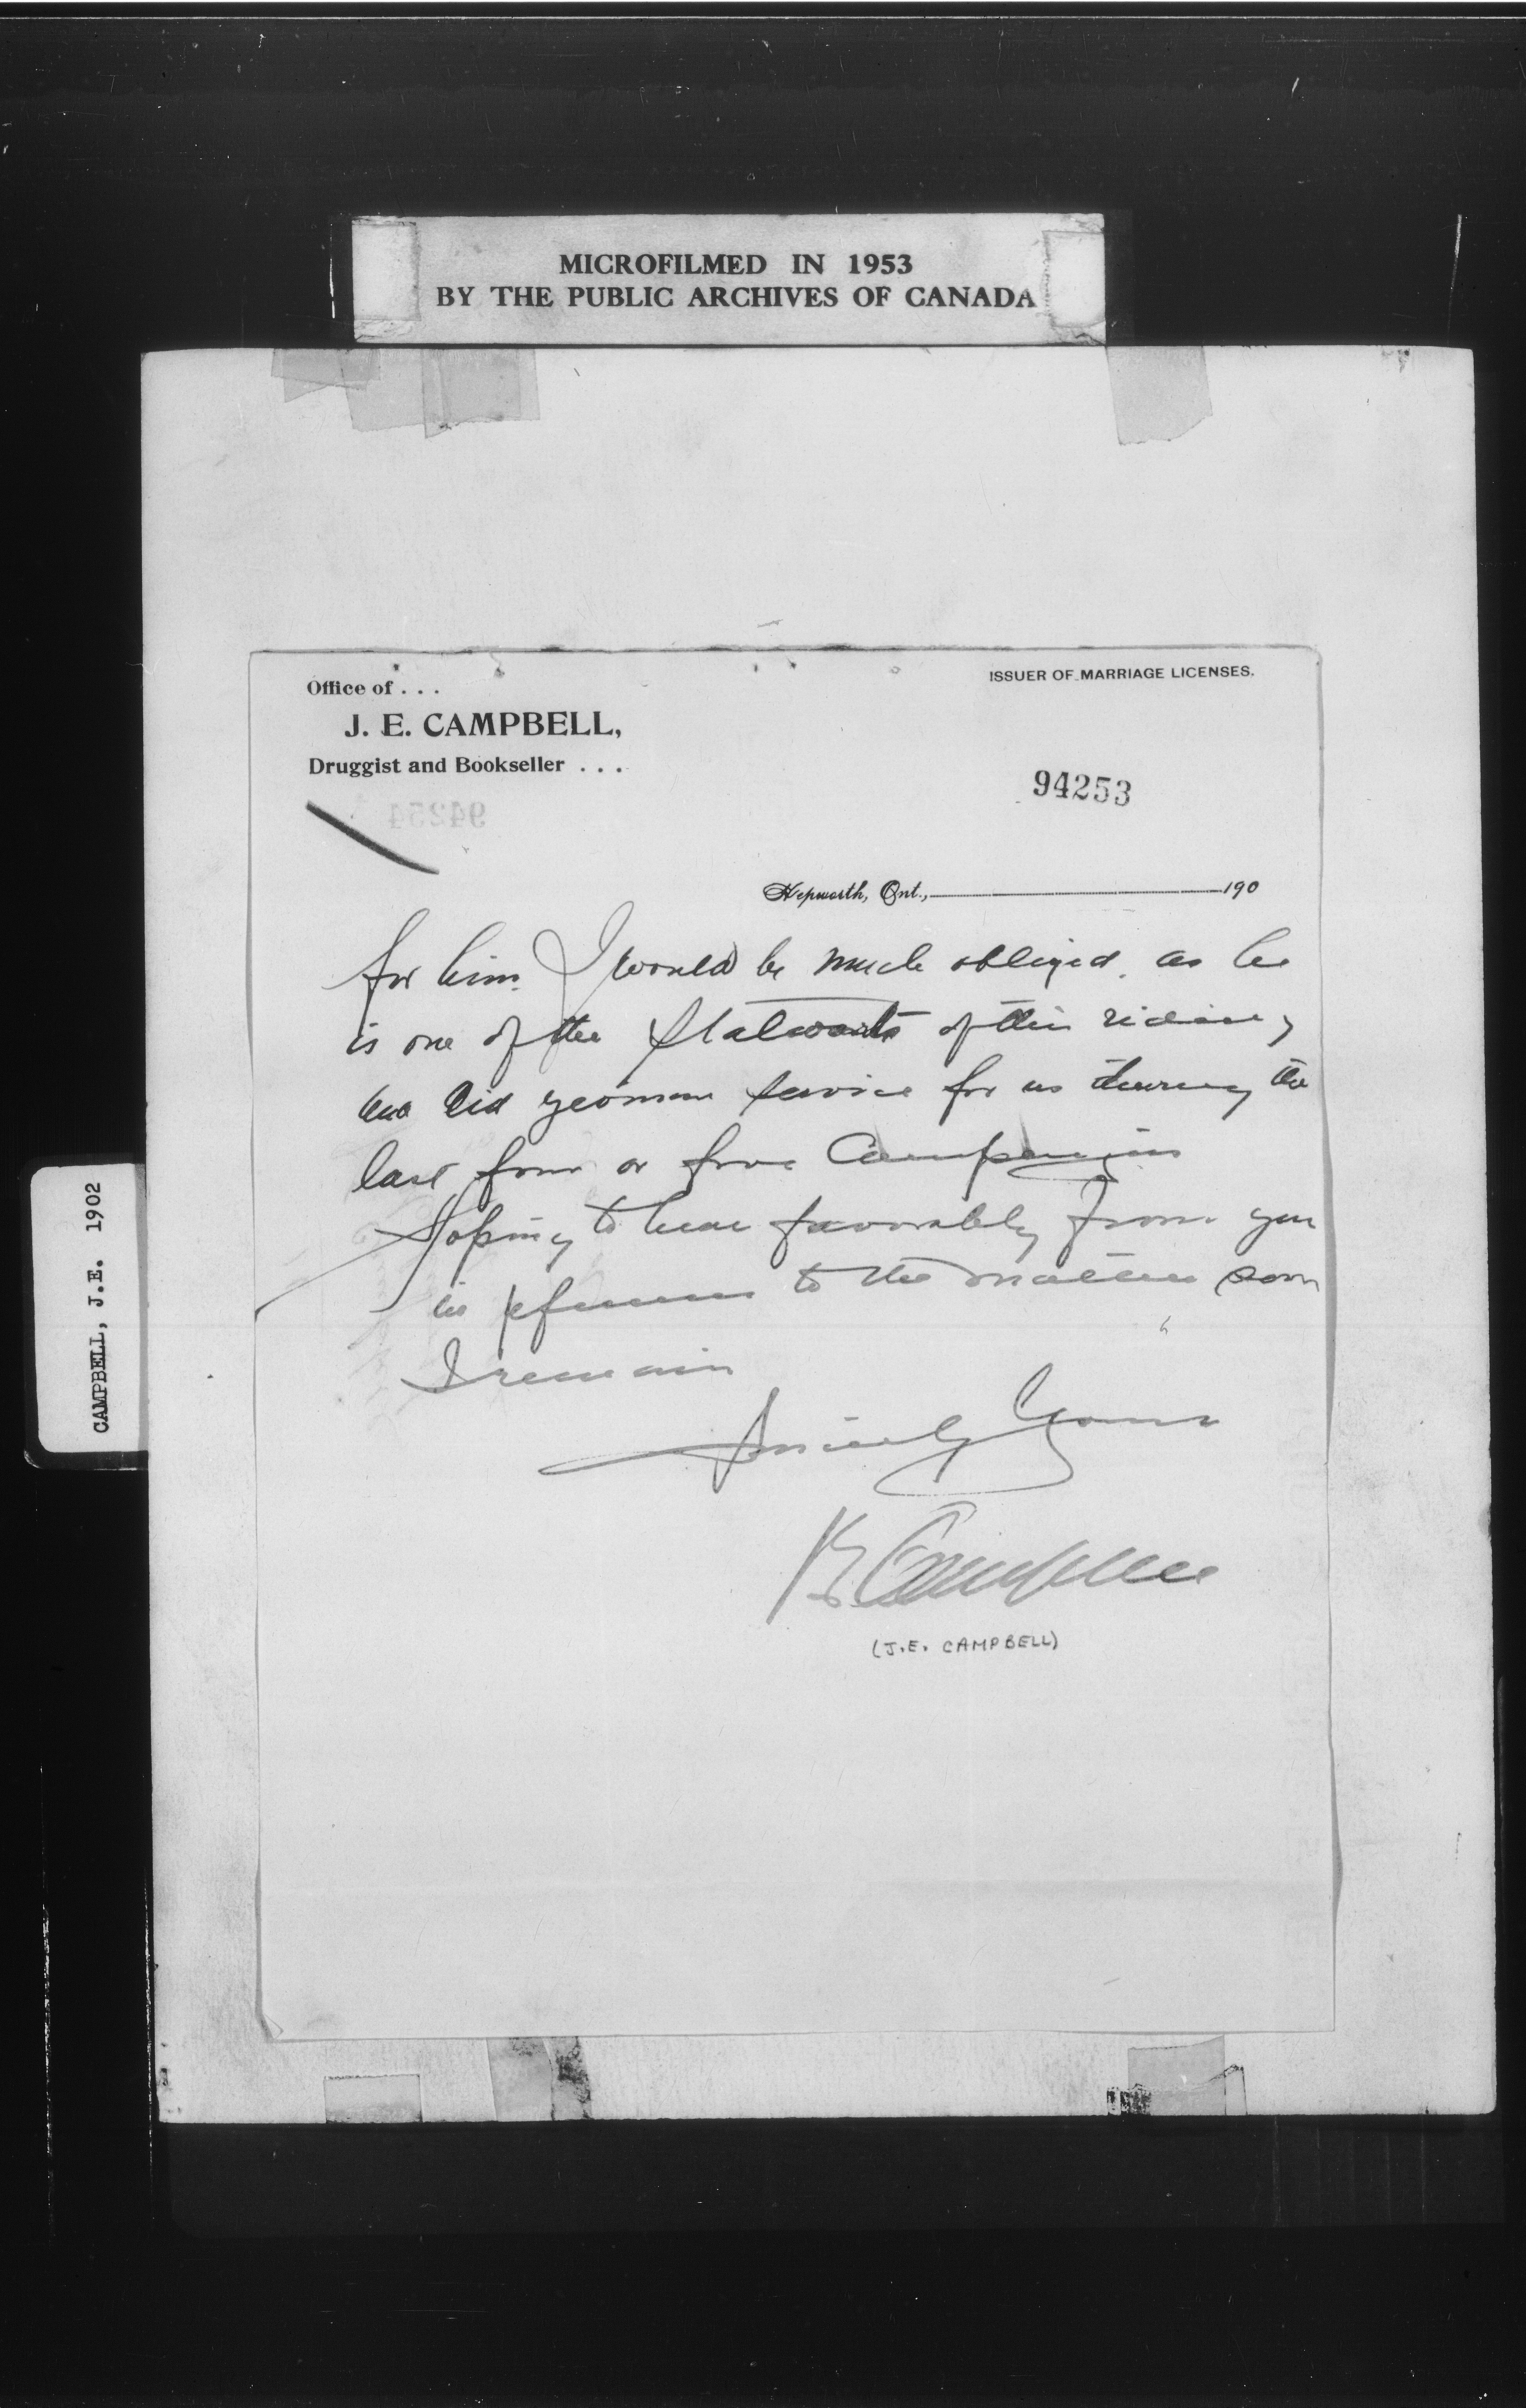 MICROFILMED IN 1953
BY THE PUBLIC ARCHIVES OF CANADA
Office of . . .
ISSUER OF MARRIAGE LICENSES.
J. E. CAMPBELL,
Druggist and Bookseller . . .
94253
94254
Hepworth, Ont., 190
for him. I would be much obliged. as he
is one of the Stalwarts of this riding
and did yeoman service for us during the
last four or five Campaigns
Hoping to hear favorably from you
in reference to the matter soon
I remain
Sincerely Yours
J E Campbell
(J.E. CAMPBELL)
CAMPBELL, J.E. 1902